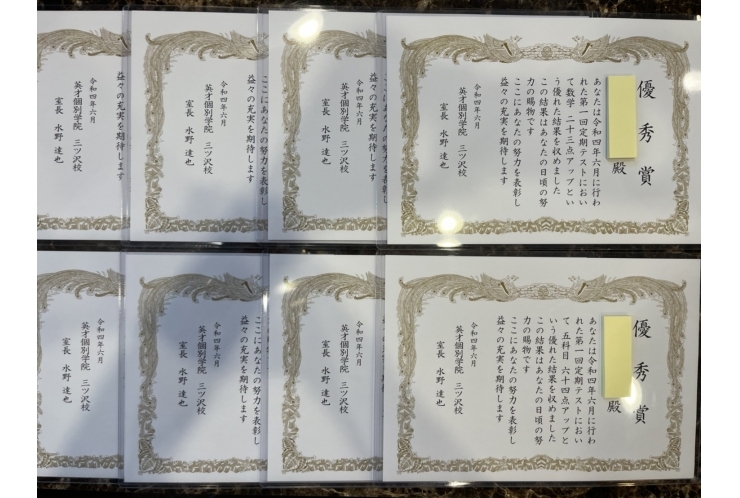 優秀賞
殿
あなたは令和四年六月に行わ
れた第一回定期テストにおい
て数学 二十三点アップとい
う優れた結果を収めました
この結果はあなたの日頃の努
力の賜物です
ここにあなたの努力を表彰し
益々の充実を期待します
令和四年六月
英才個別学院 三ツ沢校
室長 水野 達也
ここにあなたの努力を表彰し
益々の充実を期待します
令和四年六月
英才個別学院 三ツ沢校
室長 水野 達也
ここにあなたの努力を表彰し
益々の充実を期待します
令和四年六月
英才個別学院 三ツ沢校
室長 水野 達也
益々の充実を期待します
令和四年六月
英才個別学院 三ツ沢校
室長 水野 達也
優秀賞
殿
あなたは令和四年六月に行わ
れた第一回定期テストにおい
て 五科目 六十四点アップと
いう優れた結果を収めました
この結果はあなたの日頃の努
力の賜物です
ここにあなたの努力を表彰し
益々の充実を期待します
令和四年六月
英才個別学院 三ツ沢校
室長 水野 達也
令和四年六月
英才個別学院 三ツ沢校
室長 水野 達也
ここにあなたの努力を表彰し
益々の充実を期待します
令和四年六月
英才個別学院 三ツ沢校
室長 水野 達也
令和四年六月
英才個別学院 三ツ沢校
室長 水野 達也